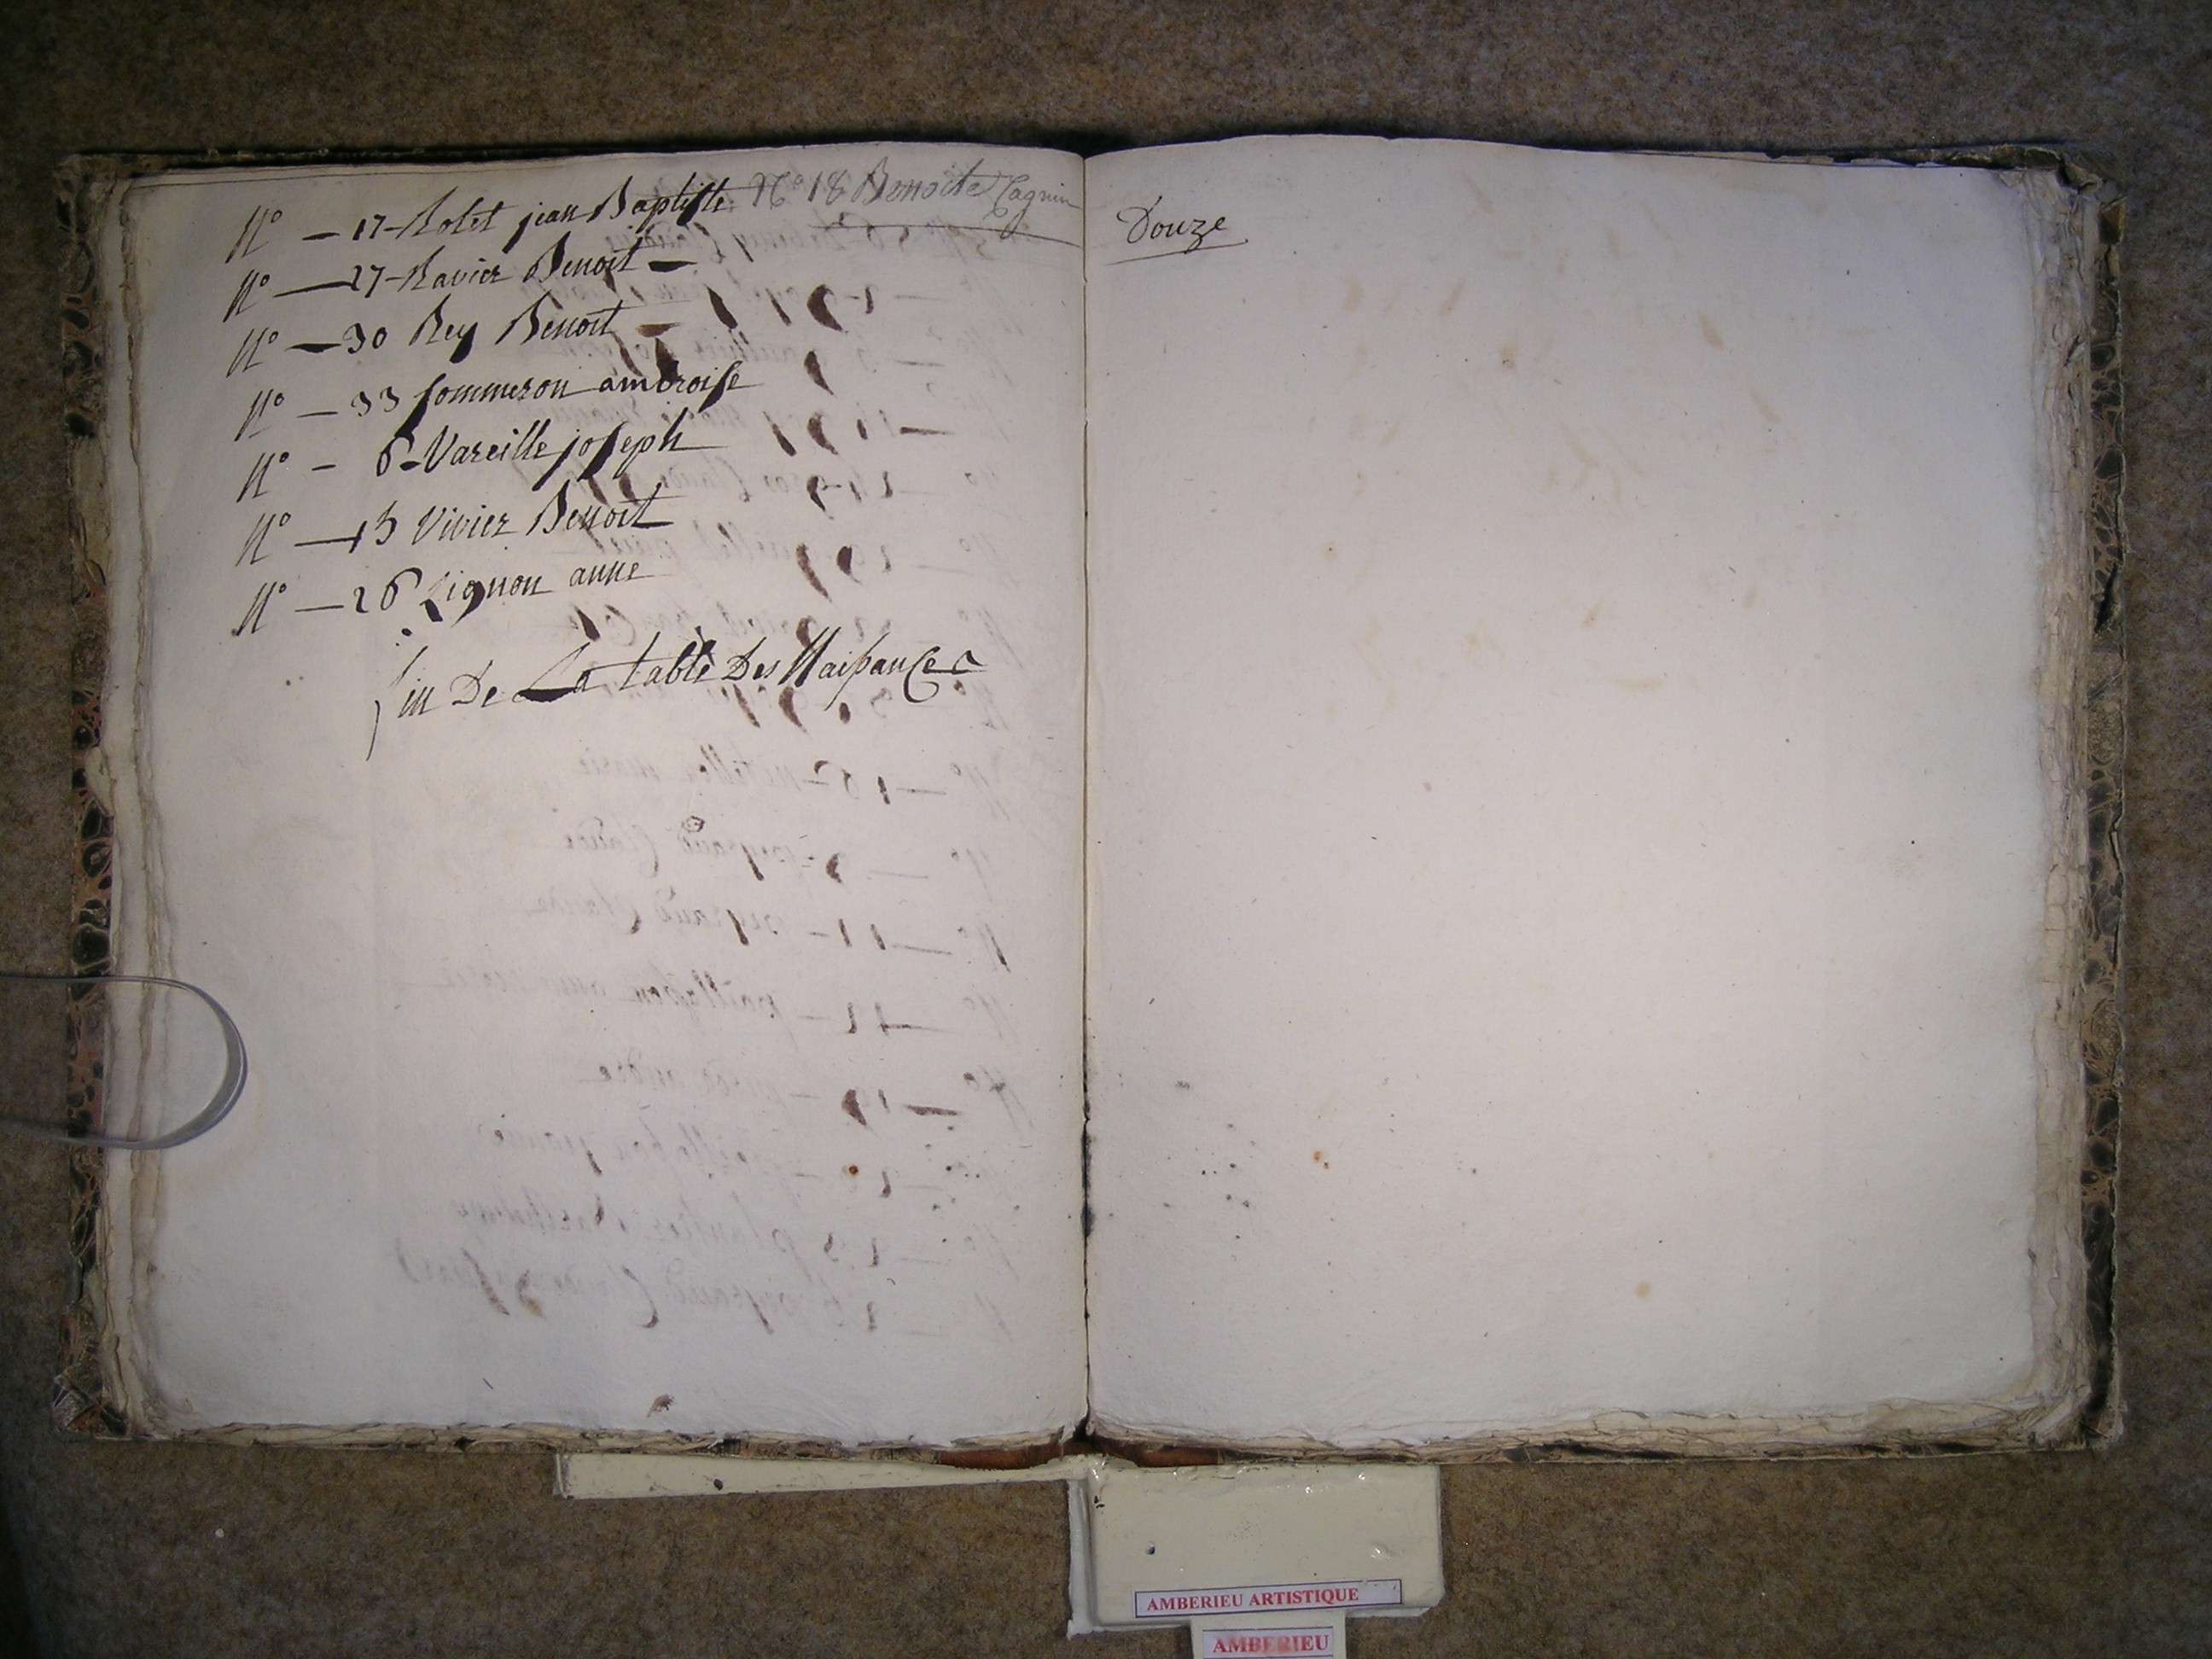 N° — 17 - Rolet jean Baptiste. N° 18 Benoite Cagnin
N° — 27 - Ravier Benoit —
N° — 30 Rey Benoit —
N° — 33 sommeron ambroise
N° — 6 - Vareille joseph
N° — 13 Vivier Benoit
N° — 26 Lignon anne
fin De La table Des Naissances
Douze
AMBERIEU ARTISTIQUE
AMBERIEU